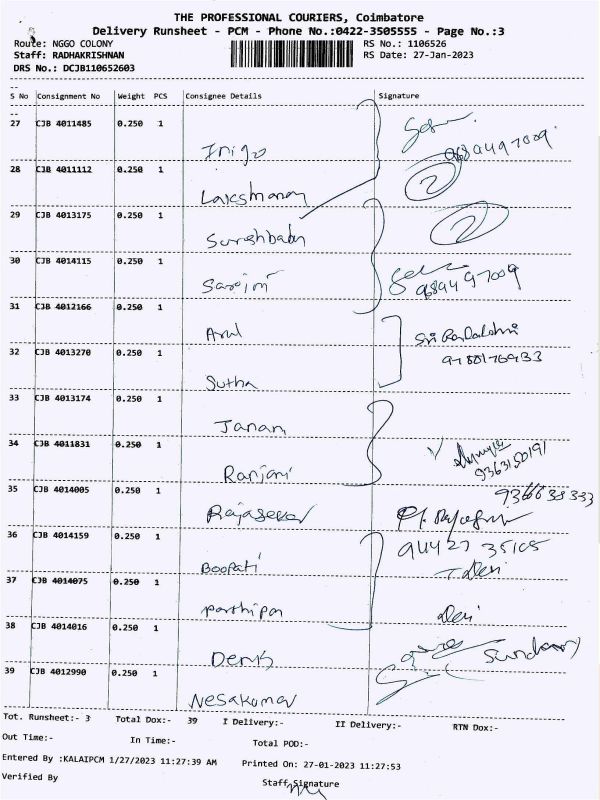 THE PROFESSIONAL COURIERS, Coimbatore
Delivery Runsheet - PCM - Phone No.:0422-3505555 - Page No.:3
Route: NGGO COLONY RS No.: 1106526
Staff: RADHAKRISHNAN RS Date: 27-Jan-2023
DRS No.: DCJB110652603
S No Consignment No Weight PCS Consignee Details Signature
27 CJB 4011485 0.250 1
Inigo 9689497009
28 CJB 4011112 0.250 1 2
Lakshmanan
29 CJB 4013175 0.250 1 2
Sureshbabu
30 CJB 4014115 0.250 1
Sarojini 9894497009
31 CJB 4012166 0.250 1
Arul
32 CJB 4013270 0.250 1
Sutha
33 CJB 4013174 0.250 1
Janani
34 CJB 4011831 0.250 1
Ranjani 9363150191
35 CJB 4014005 0.250 1
Rajasekar
36 CJB 4014159 0.250 1
Boopati T. Devi
37 CJB 4014075 0.250 1
Parthipan Devi
38 CJB 4014016 0.250 1
Denis
39 CJB 4012990 0.250 1
Nesakumar
Tot. Runsheet:- 3 Total Dox:- 39 I Delivery:- II Delivery:- RTN Dox:-
Out Time:- In Time:- Total POD:-
Entered By :KALAIPCM 1/27/2023 11:27:39 AM Printed On: 27-01-2023 11:27:53
Verified By Staff Signature